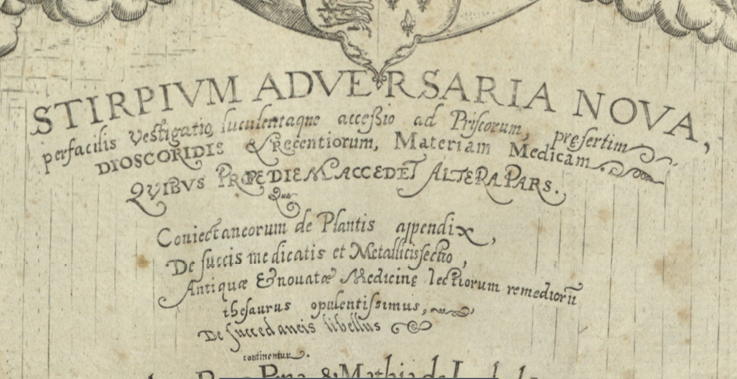 STIRPIVM ADVERSARIA NOVA,
perfacilis vestigatio, luculentaque accessio ad Priscorum, presertim
DIOSCORIDIS & Recentiorum, Materiam Medicam.
QVIBVS PROPEDIEM ACCEDET ALTERA PARS.
Qua
Coniectaneorum de Plantis appendix,
De succis medicatis et Metallicis sectio,
Antiquæ & novatæ Medicinę lectiorum remediorū
thesaurus opulentissimus,
De succedaneis libellus
continentur.
Pena, & Mathia de